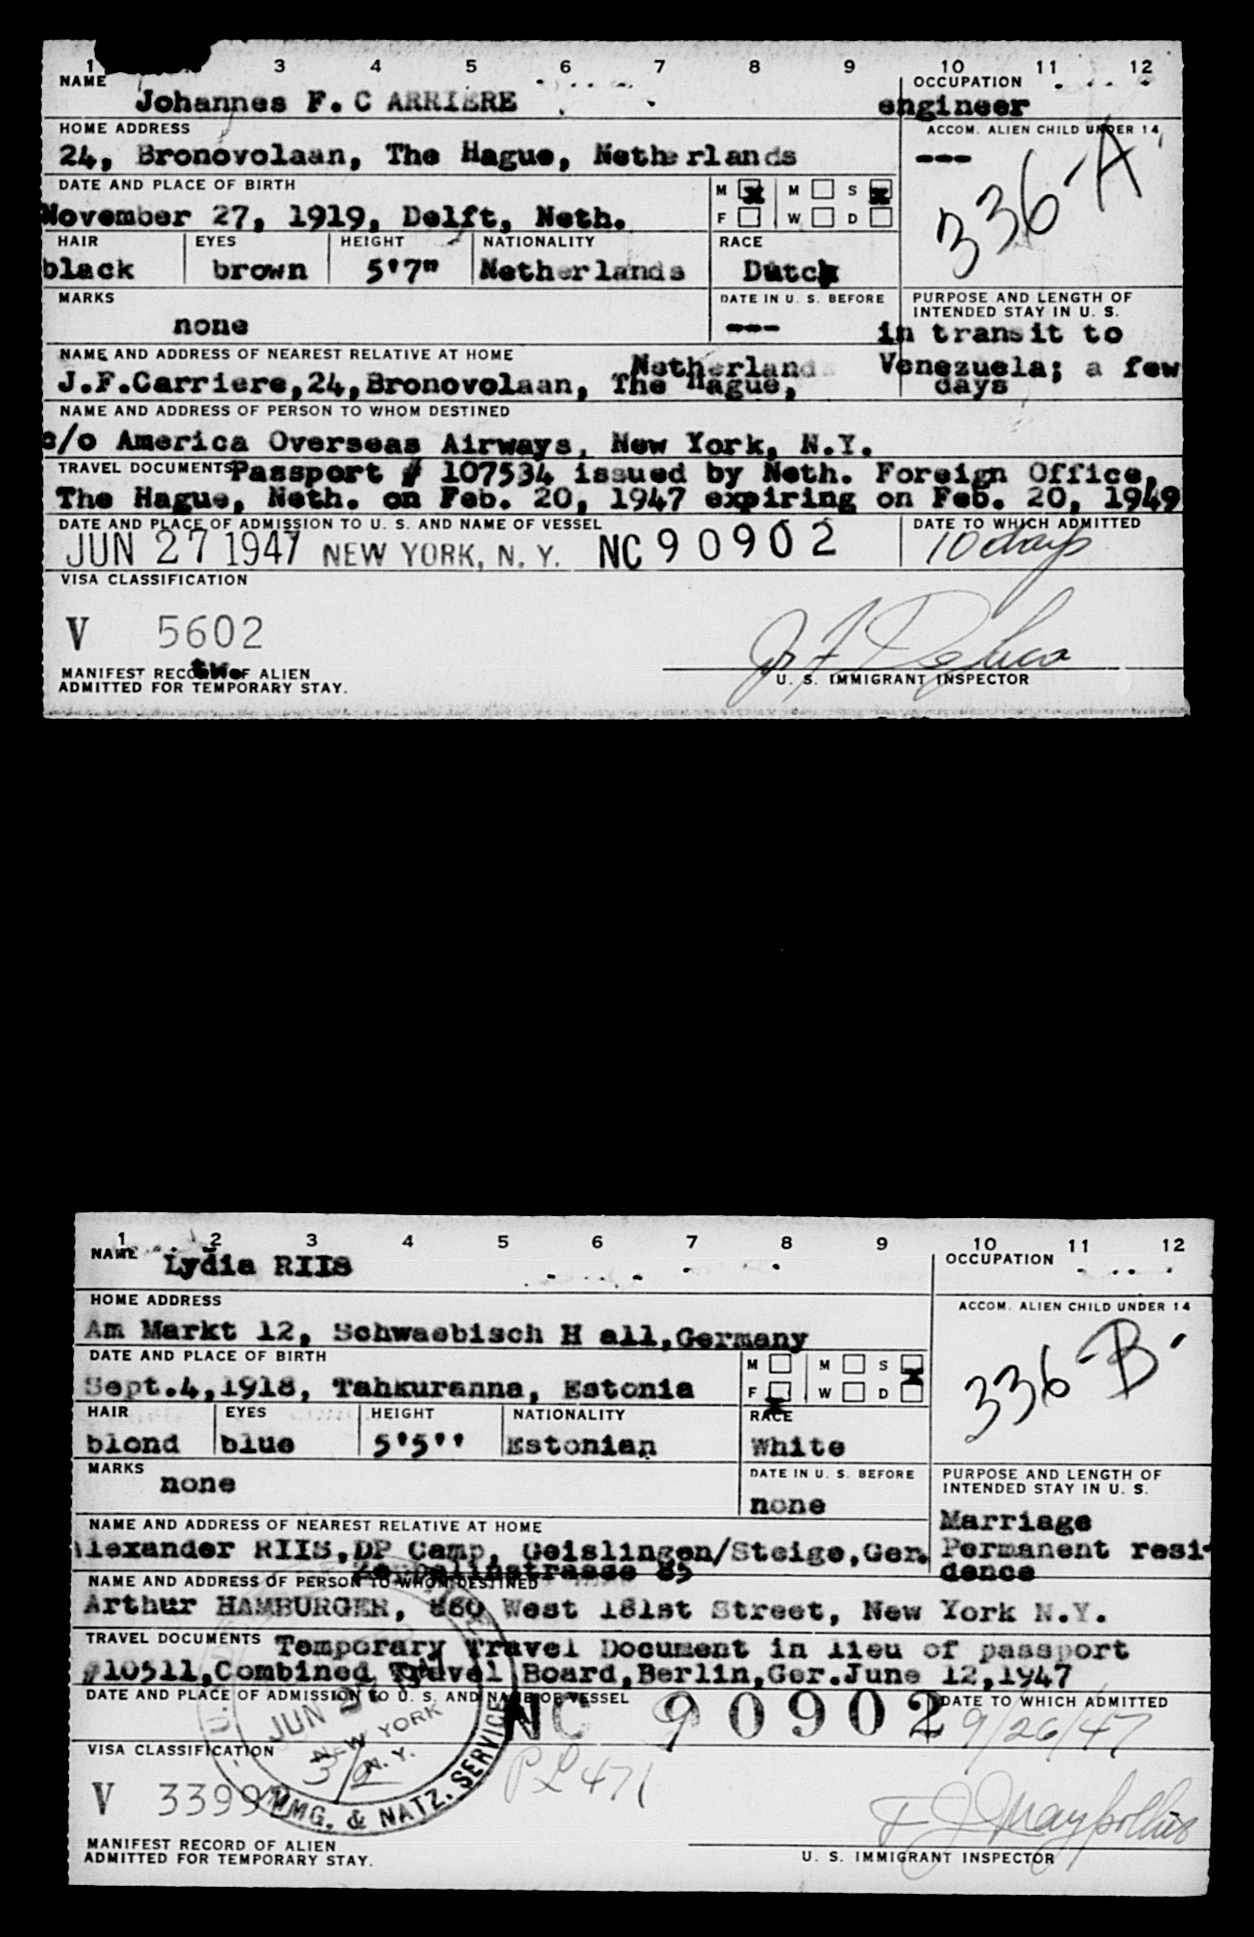 1 3 4 5 6 7 8 9 10 11 12
NAME Johannes F. C ARRIERE
OCCUPATION engineer
HOME ADDRESS
24, Bronovolaan, The Hague, Netherlands
ACCOM. ALIEN CHILD UNDER 14
---
336-A
DATE AND PLACE OF BIRTH
November 27, 1919, Delft, Neth.
M M S
F W D
HAIR EYES HEIGHT NATIONALITY RACE
black brown 5'7" Netherlands Dutch
MARKS
none
DATE IN U. S. BEFORE
---
PURPOSE AND LENGTH OF
INTENDED STAY IN U. S.
in transit to
Venezuela; a few
days
NAME AND ADDRESS OF NEAREST RELATIVE AT HOME
Netherlands
J.F.Carriere,24,Bronovolaan, The Hague,
NAME AND ADDRESS OF PERSON TO WHOM DESTINED
c/o America Overseas Airways, New York, N.Y.
TRAVEL DOCUMENTS Passport # 107534 issued by Neth. Foreign Office,
The Hague, Neth. on Feb. 20, 1947 expiring on Feb. 20, 1949
DATE AND PLACE OF ADMISSION TO U. S. AND NAME OF VESSEL
JUN 27 1947 NEW YORK, N. Y. NC 90902
DATE TO WHICH ADMITTED
10 days
VISA CLASSIFICATION
V 5602
MANIFEST RECORD OF ALIEN
ADMITTED FOR TEMPORARY STAY.
U. S. IMMIGRANT INSPECTOR
1 2 3 4 5 6 7 8 9 10 11 12
NAME Lydia RIIS
OCCUPATION
HOME ADDRESS
Am Markt 12, Schwaebisch H all,Germany
ACCOM. ALIEN CHILD UNDER 14
336-B
DATE AND PLACE OF BIRTH
Sept.4,1918, Tahkuranna, Estonia
M M S
F W D
HAIR EYES HEIGHT NATIONALITY RACE
blond blue 5'5'' Estonian White
MARKS
none
DATE IN U. S. BEFORE
none
PURPOSE AND LENGTH OF
INTENDED STAY IN U. S.
Marriage
Permanent resi-
dence
NAME AND ADDRESS OF NEAREST RELATIVE AT HOME
Alexander RIIS,DP Camp, Geislingen/Steige,Ger.
Zeppelinstrasse 85
NAME AND ADDRESS OF PERSON TO WHOM DESTINED
Arthur HAMBURGER, 860 West 181st Street, New York N.Y.
TRAVEL DOCUMENTS Temporary Travel Document in lieu of passport
#10511,Combined Travel Board,Berlin,Ger.June 12,1947
DATE AND PLACE OF ADMISSION TO U. S. AND NAME OF VESSEL
JUN
NEW YORK
N. Y.
IMMG. & NATZ. SERVICE
NC 90902
DATE TO WHICH ADMITTED
9/26/47
VISA CLASSIFICATION
PL 471
V
MANIFEST RECORD OF ALIEN
ADMITTED FOR TEMPORARY STAY.
U. S. IMMIGRANT INSPECTOR